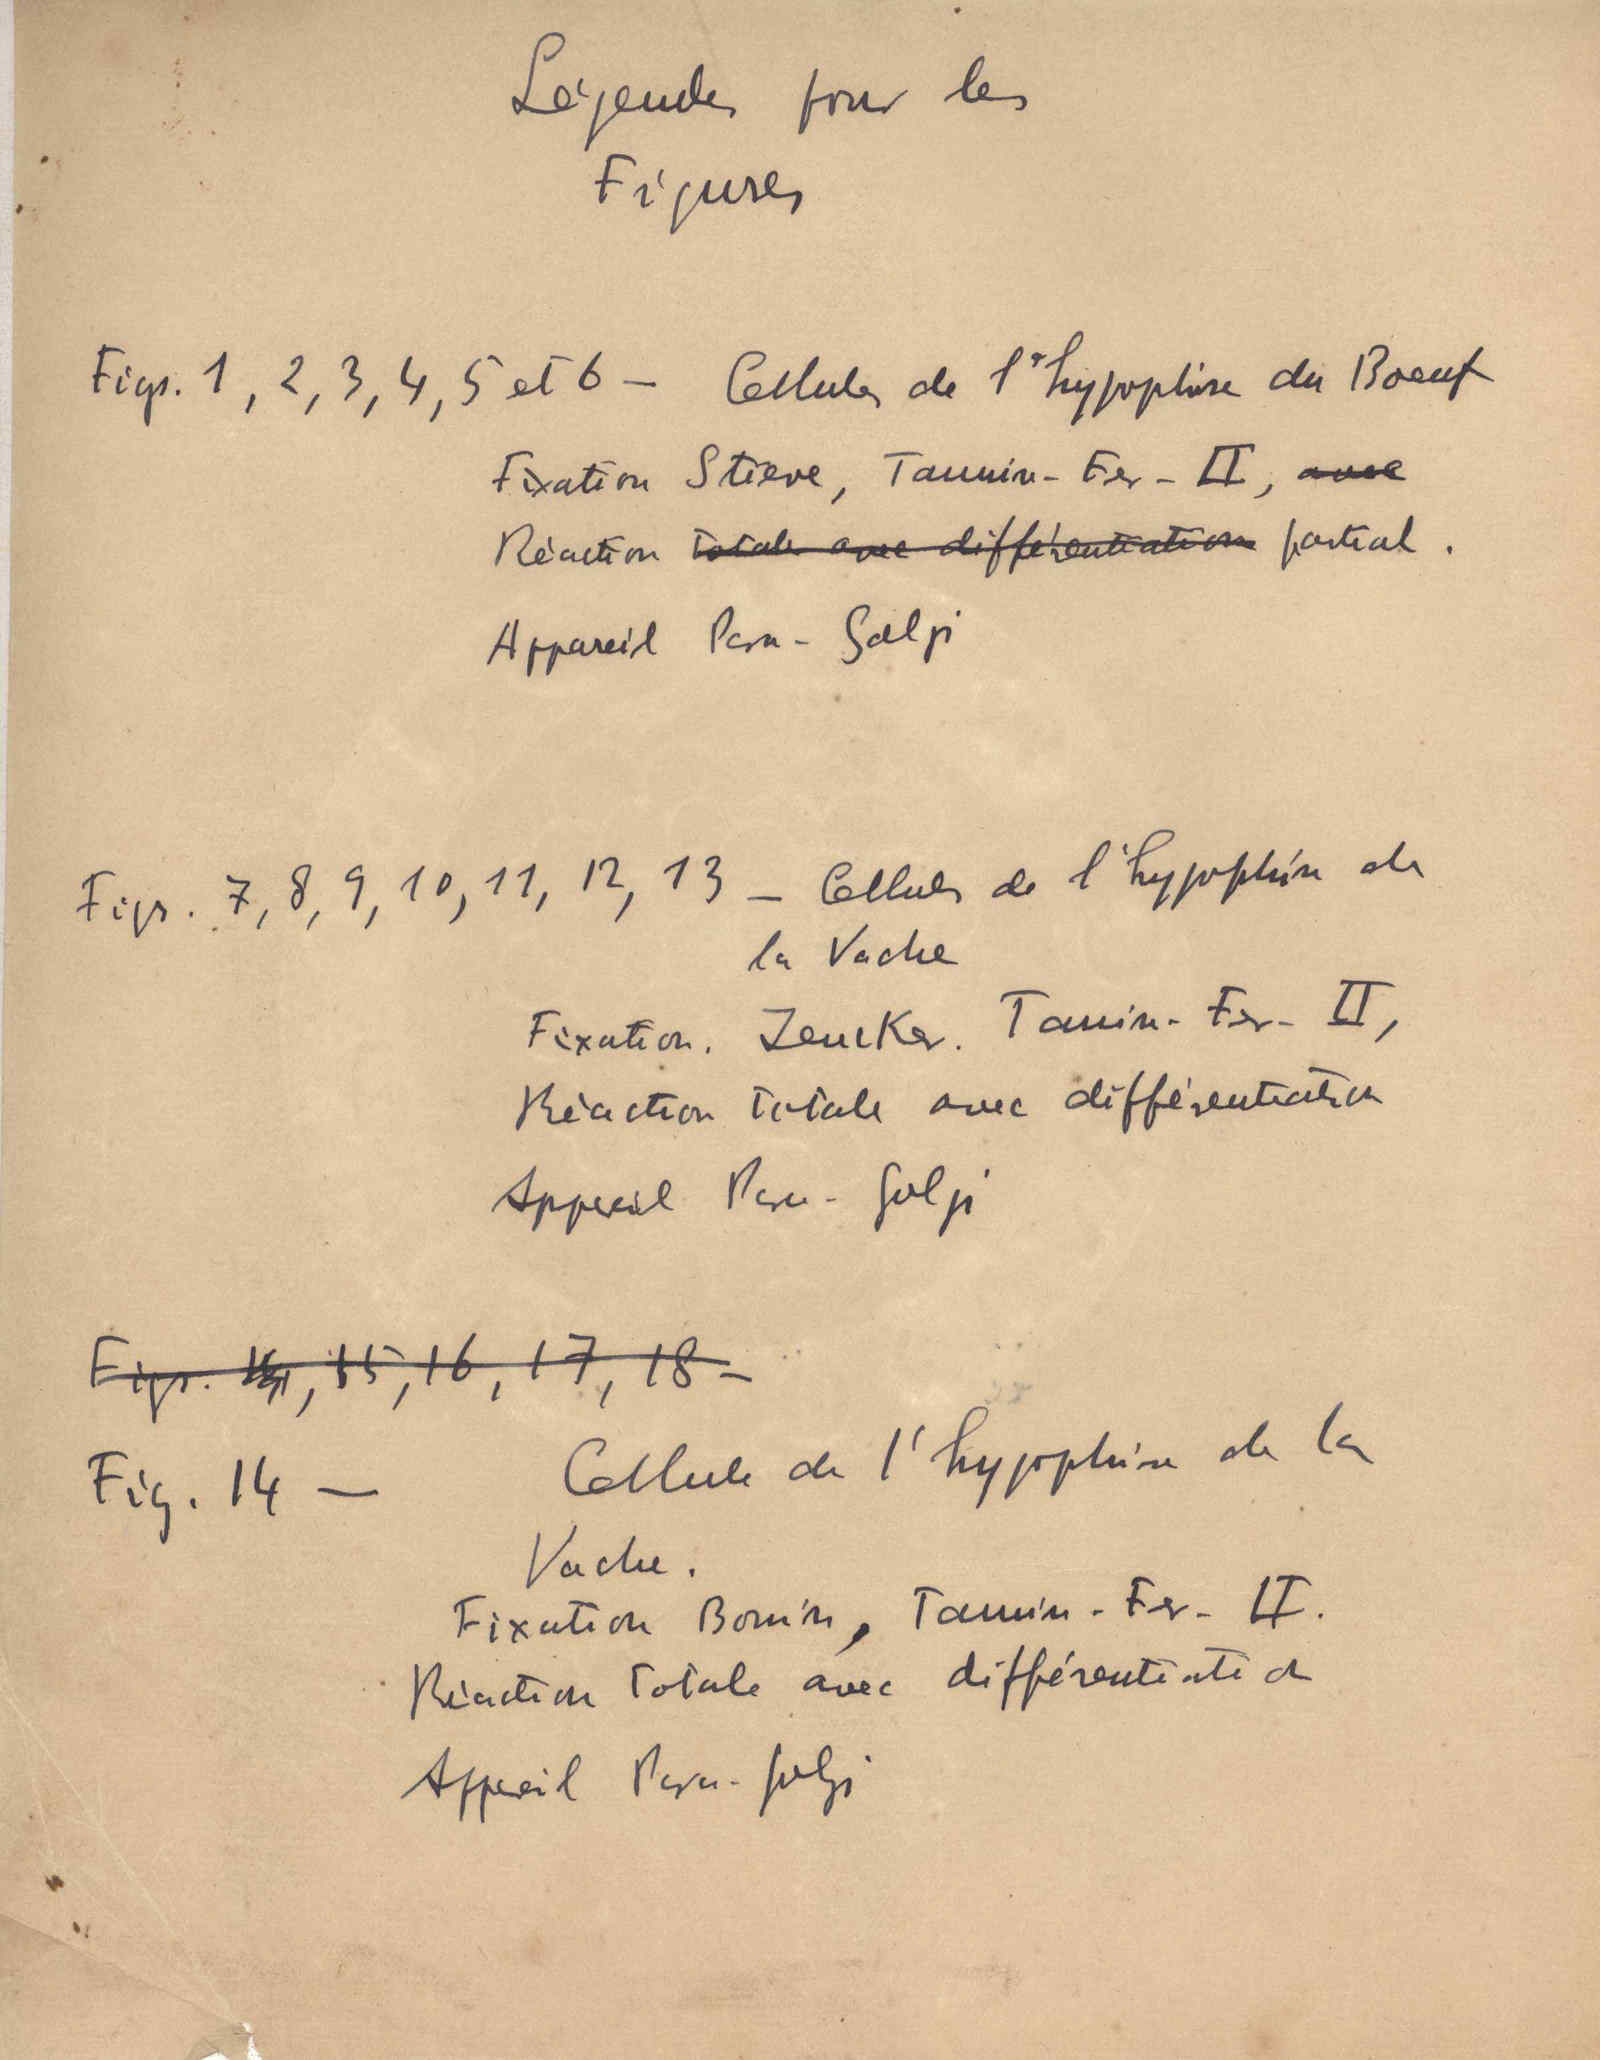 Légendes pour les
Figures
Figs. 1, 2, 3, 4, 5 et 6 – Cellules de l'hypophise du Boeuf
Fixation Stieve, Tannin-Fer-II, avec
Réaction totale avec différentiation partial.
Appareil Para-Golgi
Figs. 7, 8, 9, 10, 11, 12, 13 – Cellules de l'hypophise de
la Vache
Fixation. Zencker. Tannin-Fer-II,
Réaction totale avec différentiation
Appareil Para-Golgi
Figs. 14, 15, 16, 17, 18 –
Fig. 14 – Cellule de l'hypophise de la
Vache.
Fixation Bouin, Tannin-Fer-II.
Réaction totale avec différentiation
Appareil Para-Golgi